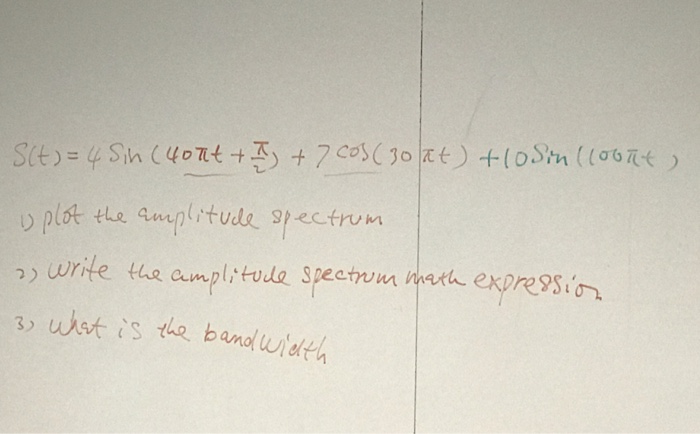 S(t) = 4 Sin (40πt + π/2) + 7 cos(30πt) + 10 Sin (100πt)
1) plot the amplitude spectrum
2) write the amplitude spectrum math expression
3) what is the bandwidth